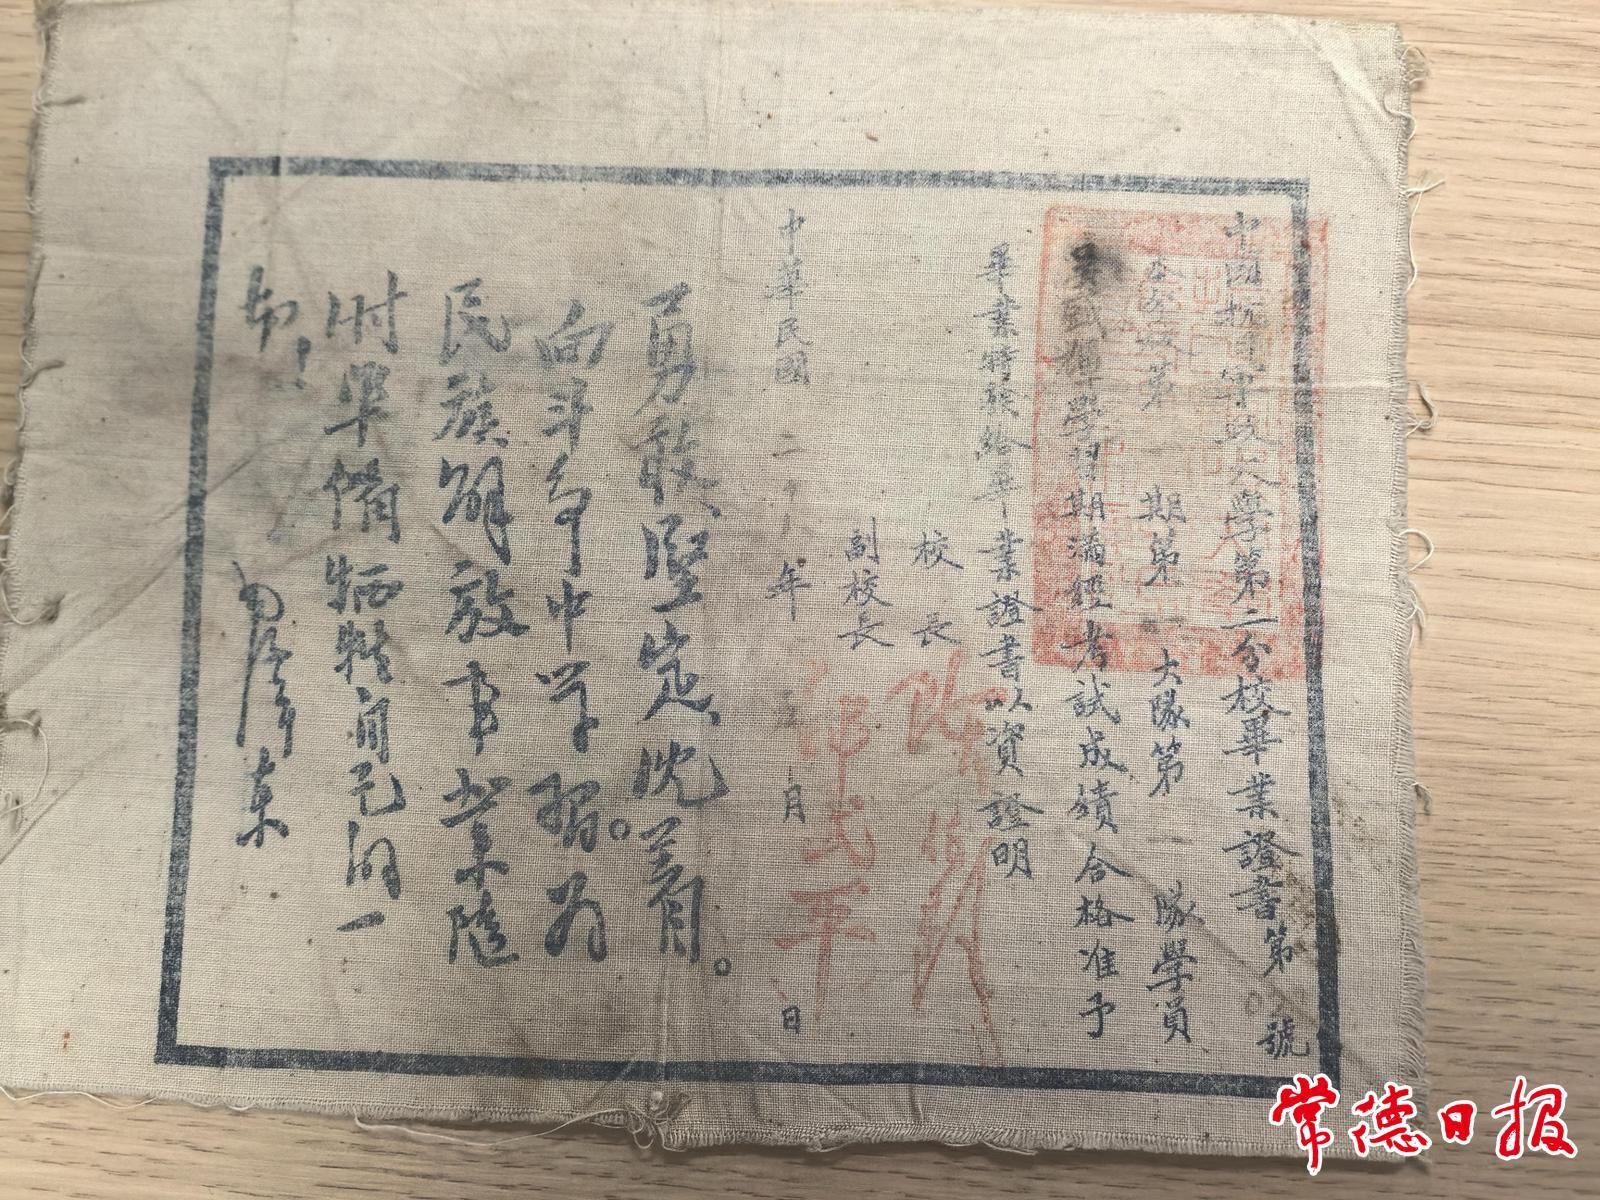 中國抗日軍政大學第二分校畢業證書第 號
本分校第一期第 大隊第一隊學員
學習期滿經考試成績合格准予
畢業特發給畢業證書以資證明
校長
副校長 邵式平
中華民國二十八年五月 日
勇敢、堅定、沈着。
向斗争中学習。为
民族解放事業隨
时準備牺牲自己的一
切！
毛泽东
常德日报